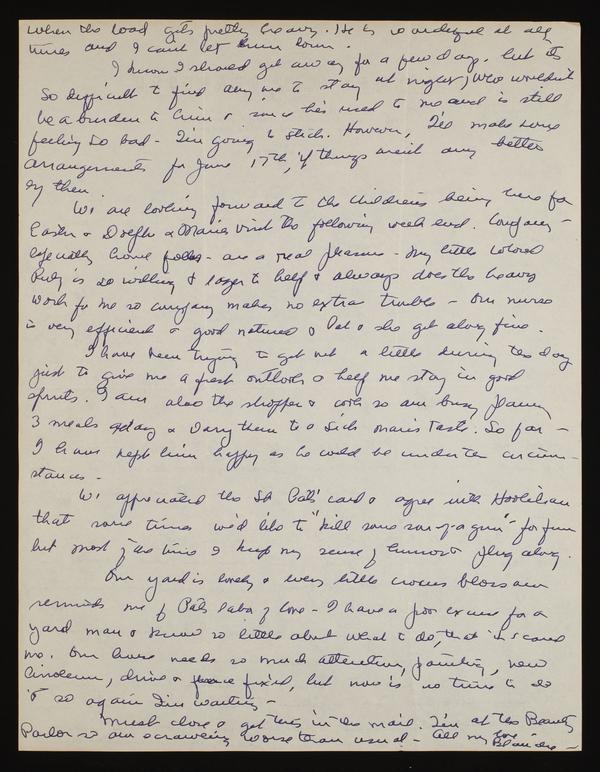 when the load gets pretty heavy. He is so at all
times and I can't let him down.
I know I should get away for a few days, but its
so difficult to find any one to stay at night, who wouldn't
be a burden to him & since he's used to me and is still
feeling so bad - I'm going to stick. However, I'll make some
arrangements for June 17th, if things aren't any better
by then.
We are looking forward to the childrens being here for
Easter & Dolph & Maries visit the following week end. Company -
especially home folks - are a real pleasure - My little colored
Ruby is so willing & eager to help & always does the heavy
work for me so company makes no extra trouble - Our nurse
is very efficient & good natured & & she get along fine.
I have been trying to get out a little during the day
just to give me a fresh outlook & help me stay in good
spirits. I am also the shopper & cook so am busy planning
3 meals a day & vary them to a sick man's taste. So far -
I have kept him happy as he could be under the circum-
stances -
We appreciated the St Pats' card & agree with Hoolihan
that some times we'd like to "kill some son-of-a-gun" - for fun
but most of the time I keep my sense of humor & plug along.
Our yard is lovely & every little crocus blossom
reminds me of Pats labor of love - I have a poor excuse for a
yard man & know so little about what to do, that it's scared
me. Our house needs so much attention, painting, new
linoleum, drive & fence fixed, but now is no time to do
it so again I'm waiting -
Must close & get this in the mail. I'm at the Beauty
Parlor so am scrawling worse than usual - All my love
Blanche -